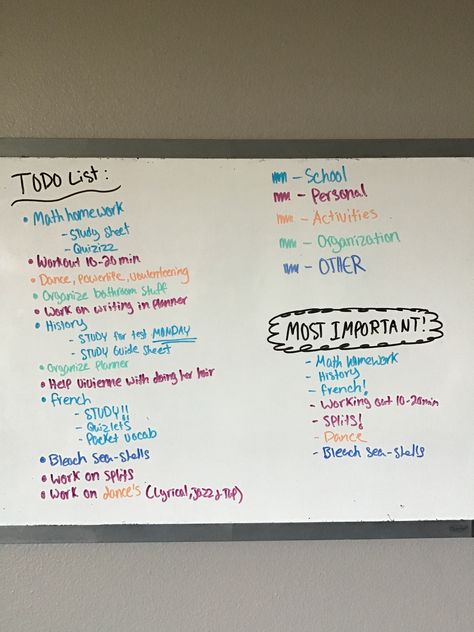 TODO LIST:
• Math homework
- Study sheet
- Quizizz
• Workout 10-20 min
• Dance, Powerlife, Voulenteering
• Organize bathroom stuff
• Work on writing in planner
• History
- STUDY for test MONDAY
- STUDY Guide Sheet
• Organize Planner
• Help Vivienne with doing her hair
• French
- STUDY!!
- Quizlets
- Pocket vocab
• Bleach sea-shells
• Work on splits
• Work on dance's (Lyrical, Jazz & Tap)
- School
- Personal
- Activities
- Organization
- OTHER
MOST IMPORTANT!
- Math homework
- History
- French!
- Working out 10-20min
- Splits!
- Dance
- Bleach sea-shells